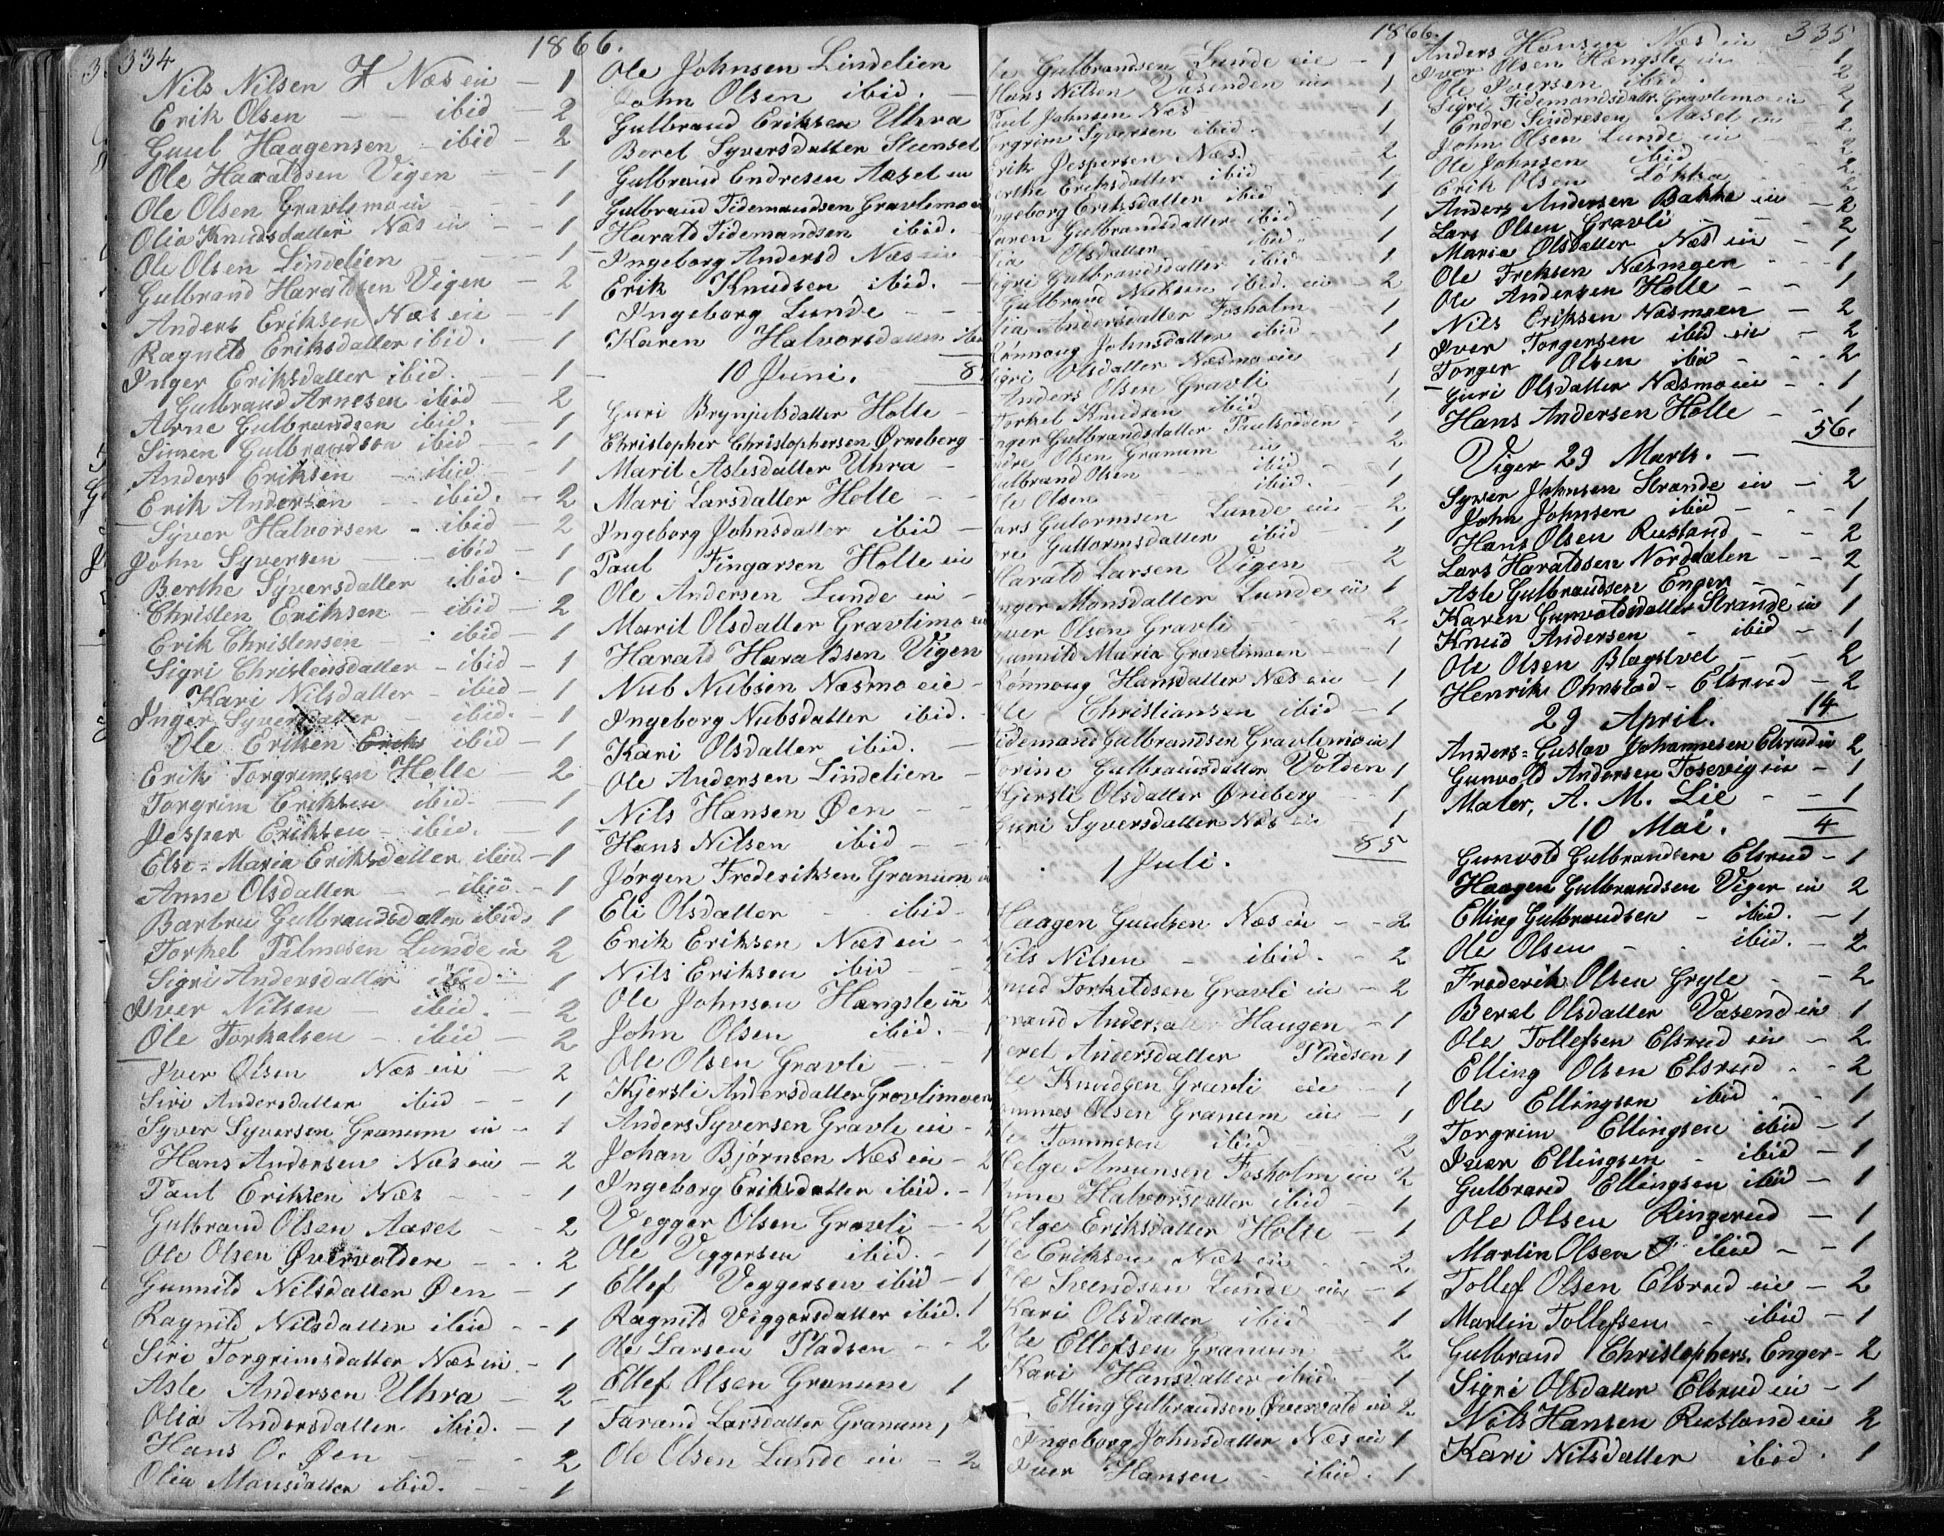 334 1866.
Nils Nilsen Næs ein — 1
Erik Olsen — ibid 2
Guul Haagensen - ibid — 2
Ole Haraldsen Vigen — 1
Ole Olsen Gravlimoein — 1
Olia Knudsdatter Næs ein — 1
Ole Olsen Lindelien — 1
Gulbrand Haraldsen Vigen — 2
Anders Eriksen Næs eie — 1
Ragnild Eriksdatter ibid. — 1
Inger Eriksdatter ibid. — 1
Gulbrand Arnesen ibid — 2
Arne Gulbrandsen ibid. — 1
Simen Gulbrandson ibid — 1
Anders Eriksen — ibid — 1
Erik Andersen — ibid. — 2
Syver Halvorsen - ibid — 2
John Syversen — ibid — 1
Berthe Syversdatter ibid. 1
Christen Eriksen — ibid — 2
Erik Christensen - ibid — 1
Sigri Christensdatter — ibid — 1
Kari Nilsdatter — ibid — 1
Inger Syversdatter — ibid. — 1
Ole Eriksen ibid — 1
Erik Torgrimsen Holte — 2
Torgrim Eriksen ibid. — 1
Jesper Eriksen — ibid. — 1
Else-Maria Eriksdatter ibid. — 1
Anne Olsdatter — ibid. — 1
Barbru Gulbrandsdatter ibid. 1
Torkel Palmesen Lunde ein 2
Sigri Andersdatter ibid — 1
Iver Nilsen — ibid. — 2
Ole Torkelsen — ibid — 2
Iver Olsen Næs ein — 2
Siri Andersdatter ibid — 1
Syver Syversen Granum ein — 1
Hans Andersen Næs ein — 2
Paul Eriksen Næs — 1
Gulbrand Olsen Aaset — 2
Ole Olsen Øvervolden — 2
Gunnild Nilsdatter Øen — 1
Ragnild Nilsdatter ibid — 1
Siri Torgrimsdatter Næs ein — 1
Asle Andersen Uhra — 2
Olia Andersdatter ibid. — 1
Hans O. Øen — 2
Olia Monsdatter ibid. — 1
Ole Johnsen Lindelien
John Olsen ibid. —
Gulbrand Eriksen Uhra
Beret Syversdatter
Gulbrand Endresen Aaset ein
Gulbrand Tidemandsen Gravlimo
Harald Tidemandsen ibid.
Ingeborg Andersd Næs ein
Erik Knudsen ibid. —
Ingeborg Lunde — —
Karen Halvorsdatter
10 Juni. 8
Guri Brynjulsdatter Holte —
Christopher Christophersen Ørneberg
Marit Aslesdatter Uhra —
Mari Larsdatter Holte — —
Ingeborg Johnsdatter ibid —
Paul Fingarsen Holte ein
Ole Andersen Lunde ein —
Marit Olsdatter Gravlimo
Harald Haraldsen Vigen
Nub Nubsen Næsmo eie —
Ingeborg Nubsdatter ibid.
Kari Olsdatter ibid. —
Ole Andersen Lindelien —
Nils Hansen Øen — —
Hans Nilsen ibid — —
Jørgen Frederiksen Granum
Eli Olsdatter — ibid —
Erik Eriksen Næs ein —
Nils Eriksen ibid —
Ole Johnsen Hængsle ein
John Olsen ibid. —
Ole Olsen Gravli — —
Kjersti Andersdatter Gravlimoen
Anders Syversen Gravli ein —
Johan Bjørnsen Næs ein — 2
Ingeborg Eriksdatter ibid. — 1
Vegger Olsen Gravli — 2
Ole Veggersen ibid. — 1
Ellef Veggersen ibid — 1
Ragnild Viggersdatter ibid. 1
Ole Larsen Pladsen — 2
Ellef Olsen Granum 1
Tarand Larsdatter Granum 1
Ole Olsen Lunde ein — 2
1866. 335
Gulbrandsen Lunde eie — 1
Hans Nilsen Vasenden ein — 1
Paul Johnsen Næs — 1
Torgrim Syversen ibid. — 1
Erik Jespersen Næs. — 2
Berthe Eriksdatter ibid — 1
Ingeborg Eriksdatter ibid — 1
Karen Gulbrandsdatter ibid — 1
Olsdatter — ibid — 1
Sigri Gulbrandsdatter ibid — 1
Gulbrand Nielsen ibid. ein — 2
Andersdatter Fosholm 1
Rønnoug Johnsdatter ibid 1
Sigri Olsdatter Næsmo ein 1
Anders Olsen Gravli 1
Torkel Knudsen ibid 1
Inger Gulbrandsdatter 1
Endre Olsen Granum ein — 2
Gulbrand Olsen — ibid — 1
Ole Olsen ibid. — 1
Lars Gutormsen Lunde ein — 2
Guttormsdatter ibid — 1
Harald Larsen Vigen — 2
Inger Monsdatter Lunde ein 1
Syver Olsen Gravli — 2
Gunnild Maria Gravlimoen — 1
Rønnoug Hansdatter Næs ein — 1
Ole Christiansen ibid — 1
Tidemand Gulbrandsen Gravlimo ein 1
Torine Gulbrandsdatter Volden 1
Kjersti Olsdatter Ørneberg — 1
Guri Syversdatter Næs ein — 1
1 Juli. 85
Haagen Guulsen Næs ein — 2
Nils Nilsen — ibid. — 2
Knud Torkildsen Gravli ein — 2
Haugen — 1
Beret Andersdatter Pladsen 1
Ole Knudsen Gravli eie — 1
Tommes Olsen Granum ein — 1
Ole Tommesen ibid — 2
Helge Amunsen Fosholm ein 2
Anne Halvorsdatter ibid — 1
Helge Eriksdatter Holte — 1
Ole Eriksen Næs ein — 2
Ole Svendsen Lunde ein — 1
Kari Olsdatter ibid — 1
Ole Ellefsen Granum — 2
Kari Hansdatter ibid. — 1
Elling Gulbrandsen Øvervold ein 2
Ingeborg Johnsdatter Næs ein 1
Iver Hansen — ibid. 1
Anders Hansen Næs ein 1
Iver Olsen Hængsle ein 2
Ole Iversen ibid. 2
Sigri Tidemandsdatter Gravlimo ein — 1
Endre Sindresen Aaset ein — 2
John Olsen Lunde ein — 2
Ole Johnsen ibid 2
Erik Olsen Løkka 2
Anders Andersen Bakke ein — 2
Lars Olsen Gravli — 2
Maria Olsdatter Næs ein — 1
Ole Ereksen Næsmoen — 1
Ole Andersen Holte — 1
Nils Eriksen Næsmoen — 2
Iver Torgersen ibid ein — 2
Torger Olsen ibid — 2
Guri Olsdatter Næsmo ein — 1
Hans Andersen Holte — 1
56.
Viger 29 Marts. —
Syver Johnsen Strande ein — 2
John Johnsen ibid — 1
Hans Olsen Rusland — 2
Lars Haraldsen Norddalen — 2
Asle Gulbrandsen Enger — 1
Karen Gunvoldsdatter Strande ein 1
Knud Andersen — ibid — 1
Ole Olsen Blagstvet — 2
Henrik Ohnstad — Elsrud — 2
29 April. 14
Anders-Gustav Johannesen Elsrud ein 2
Gunvold Andersen Tosevig ein — 1
Maler, A. M. Lie — — 1
10 Mai. 4
Gunvold Gulbrandsen Elsrud — 1
Haagen Gulbrandsen Viger ein 2
Elling Gulbrandsen — ibid. — 1
Ole Olsen — ibid. — 2
Frederik Olsen Gryte — 2
Beret Olsdatter Vasend ein 1
Ole Tollefsen Elsrud ein — 2
Elling Olsen Elsrud — 2
Ole Ellingsen ibid — 1
Torgrim Ellingsen ibid — 1
Iver Ellingsen — ibid — 1
Gulbrand Ellingsen ibid — 1
Ole Olsen Ringerud — 1
Martin Olsen ibid — 1
Tollef Olsen Elsrud ein — 2
Martin Tollefsen — ibid — 1
Gulbrand Christophers. Enger — 2
Sigri Olsdatter Elsrud ein — 1
Nils Hansen Rusland ein 2
Kari Nilsdatter ibid. 1